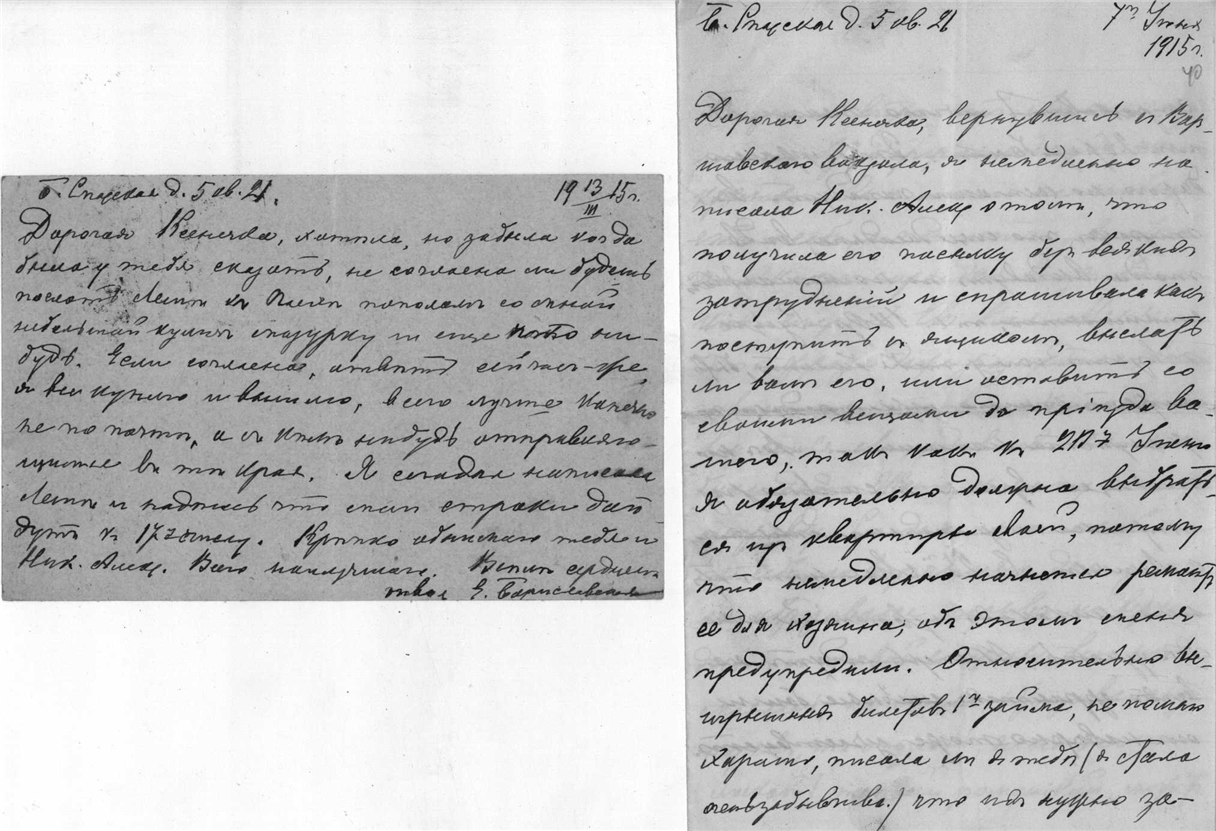 Б. Спасская д. 5 кв. 21.
19 13/III 15 г.
Дорогая Ксенечка, хотѣла, но забыла когда
была у тебя сказать, не согласна ли будешь
послать Лелѣ къ Пасхѣ пополамъ со мной
небольшой куличъ мазурку и еще что ни-
будь. Если согласна, отвѣть сейчасъ-же,
я все куплю и вышлю, всего лучше конечно
не по почтѣ, а съ кѣмъ нибудь отправляю-
щимся въ тѣ края. Я сегодня написала
Лелѣ и надѣюсь что мои строки дой-
дутъ къ 17му числу. Крѣпко обнимаю тебя и
Ник. Алек. Всего наилучшаго. Всѣмъ сердцемъ
твоя Е. Борисевская
Б. Спасская д. 5 кв. 21
7го Іюня
1915 г.
40
Дорогая Ксенечка, вернувшись съ Вар-
шавскаго вокзала, я немедленно на-
писала Ник. Алек. о томъ, что
получила его посылку безъ всякихъ
затрудненій и спрашивала какъ
поступить съ ящикомъ, выслать
ли вамъ его, или оставить со
своими вещами до пріѣзда ва-
шего, такъ какъ къ Іюню
я обязательно должна выбрать-
ся изъ квартиры моей, потому
что немедленно начнется ремонтъ
ее для хозяина, объ этомъ меня
предупредили. Относительно вы-
игрышныхъ билетовъ 1го займа, не помню
хорошо, писала ли я тебѣ (я стала
очень забывчива.) что ихъ нужно за-